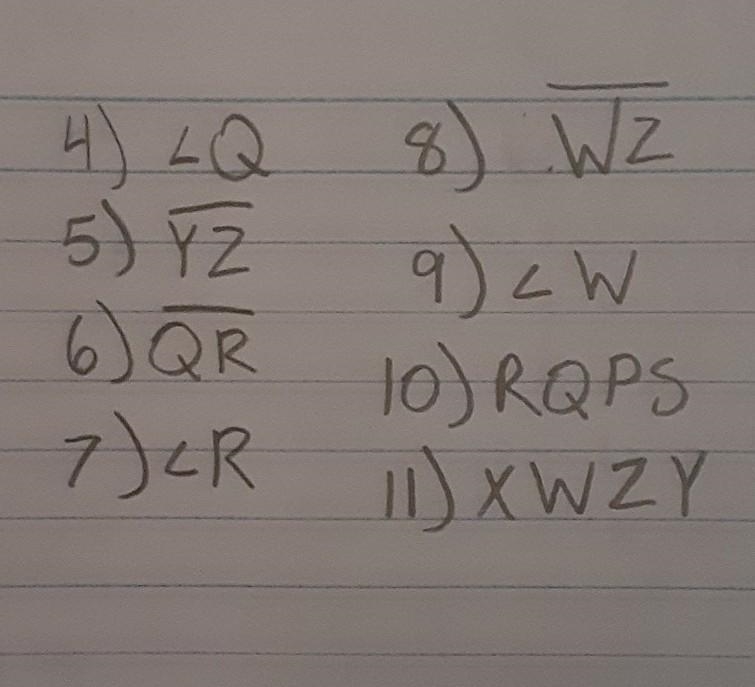 4) ∠Q
5) Y̅Z̅
6) Q̅R̅
7) ∠R
8) W̅Z̅
9) ∠W
10) RQPS
11) XWZY